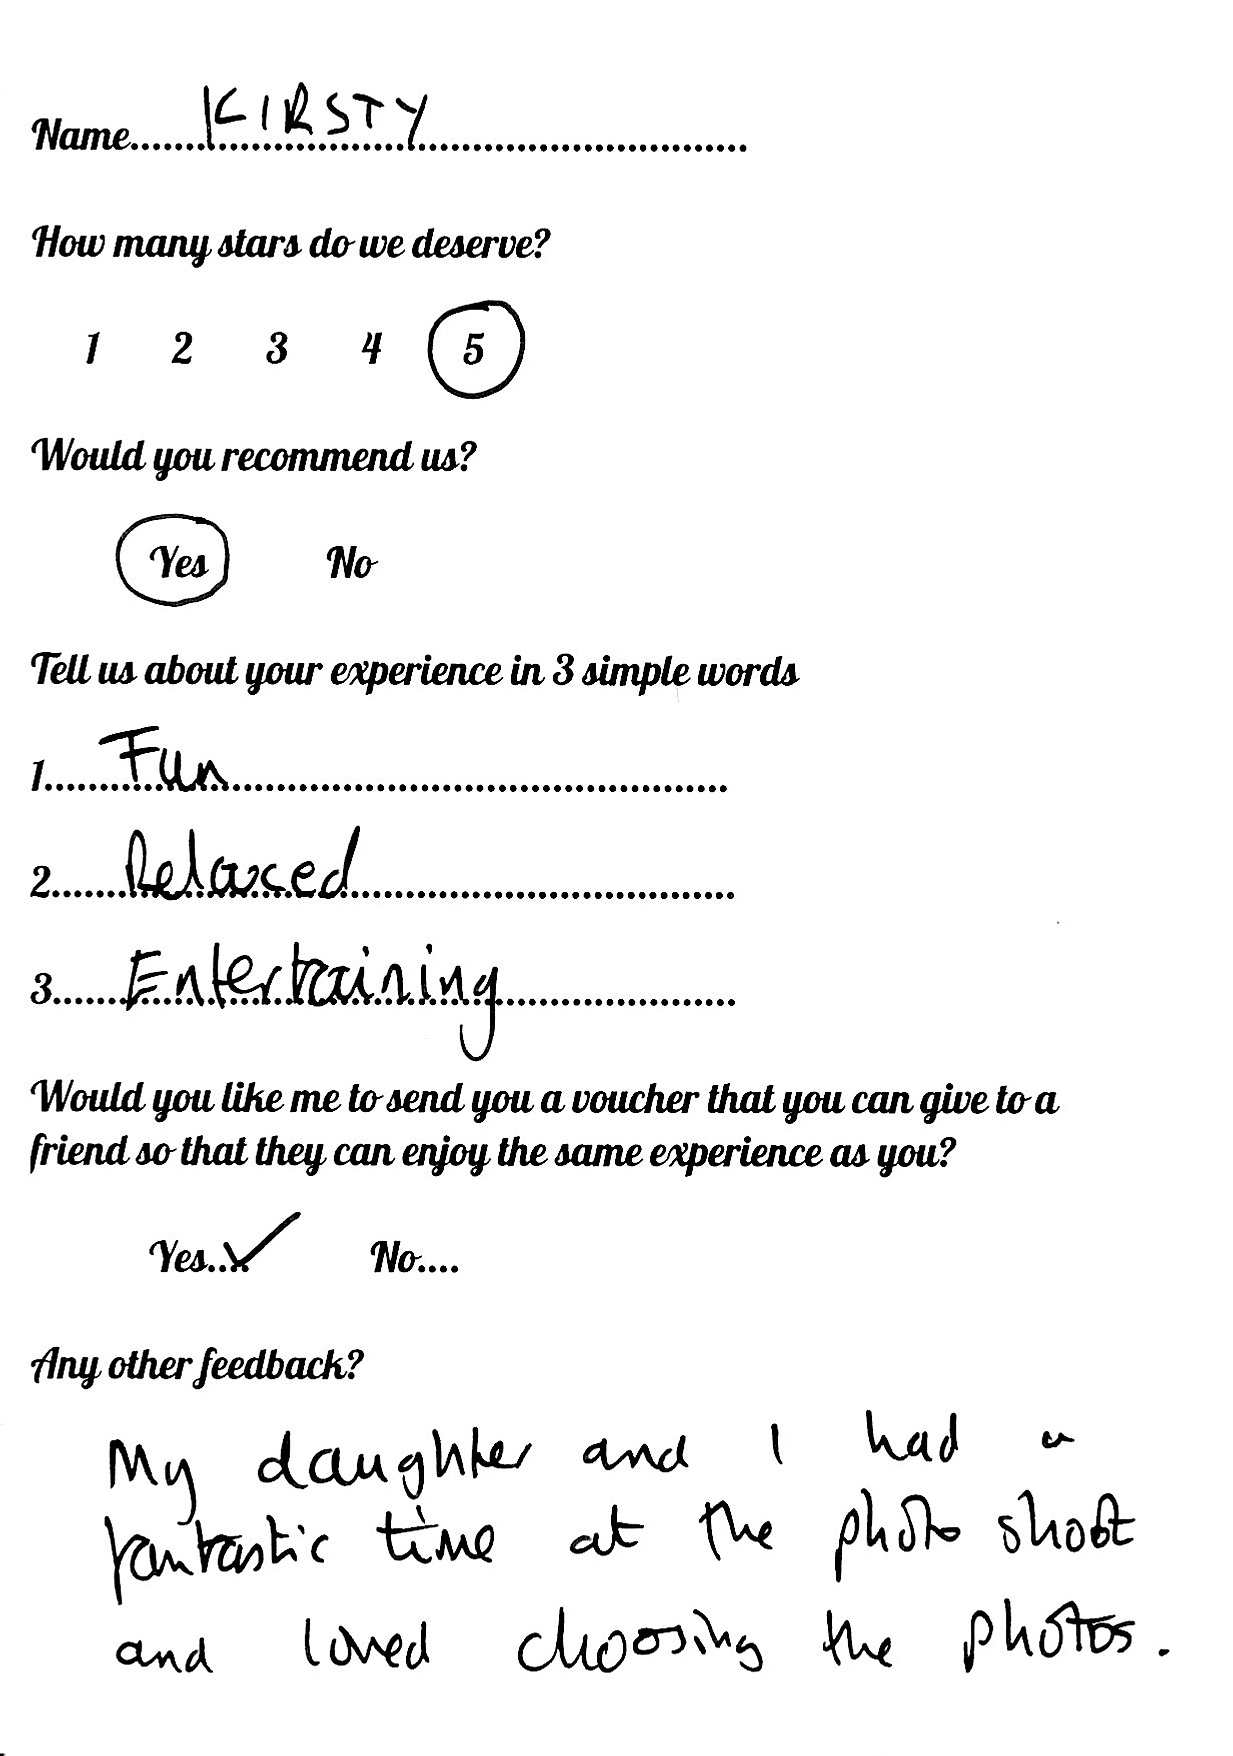 Name.......KIRSTY.......
How many stars do we deserve?
1 2 3 4 5
Would you recommend us?
Yes No
Tell us about your experience in 3 simple words
1.......Fun.......
2.......Relaxed.......
3.......Entertaining.......
Would you like me to send you a voucher that you can give to a
friend so that they can enjoy the same experience as you?
Yes....✓ No....
Any other feedback?
My daughter and I had a
fantastic time at the photo shoot
and loved choosing the photos.